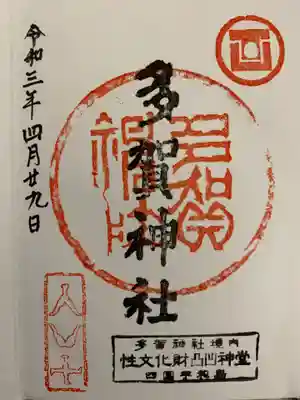 多賀神社
令和三年四月廿九日
多賀神社境内
性文化財凸凹神堂
四国宇和島